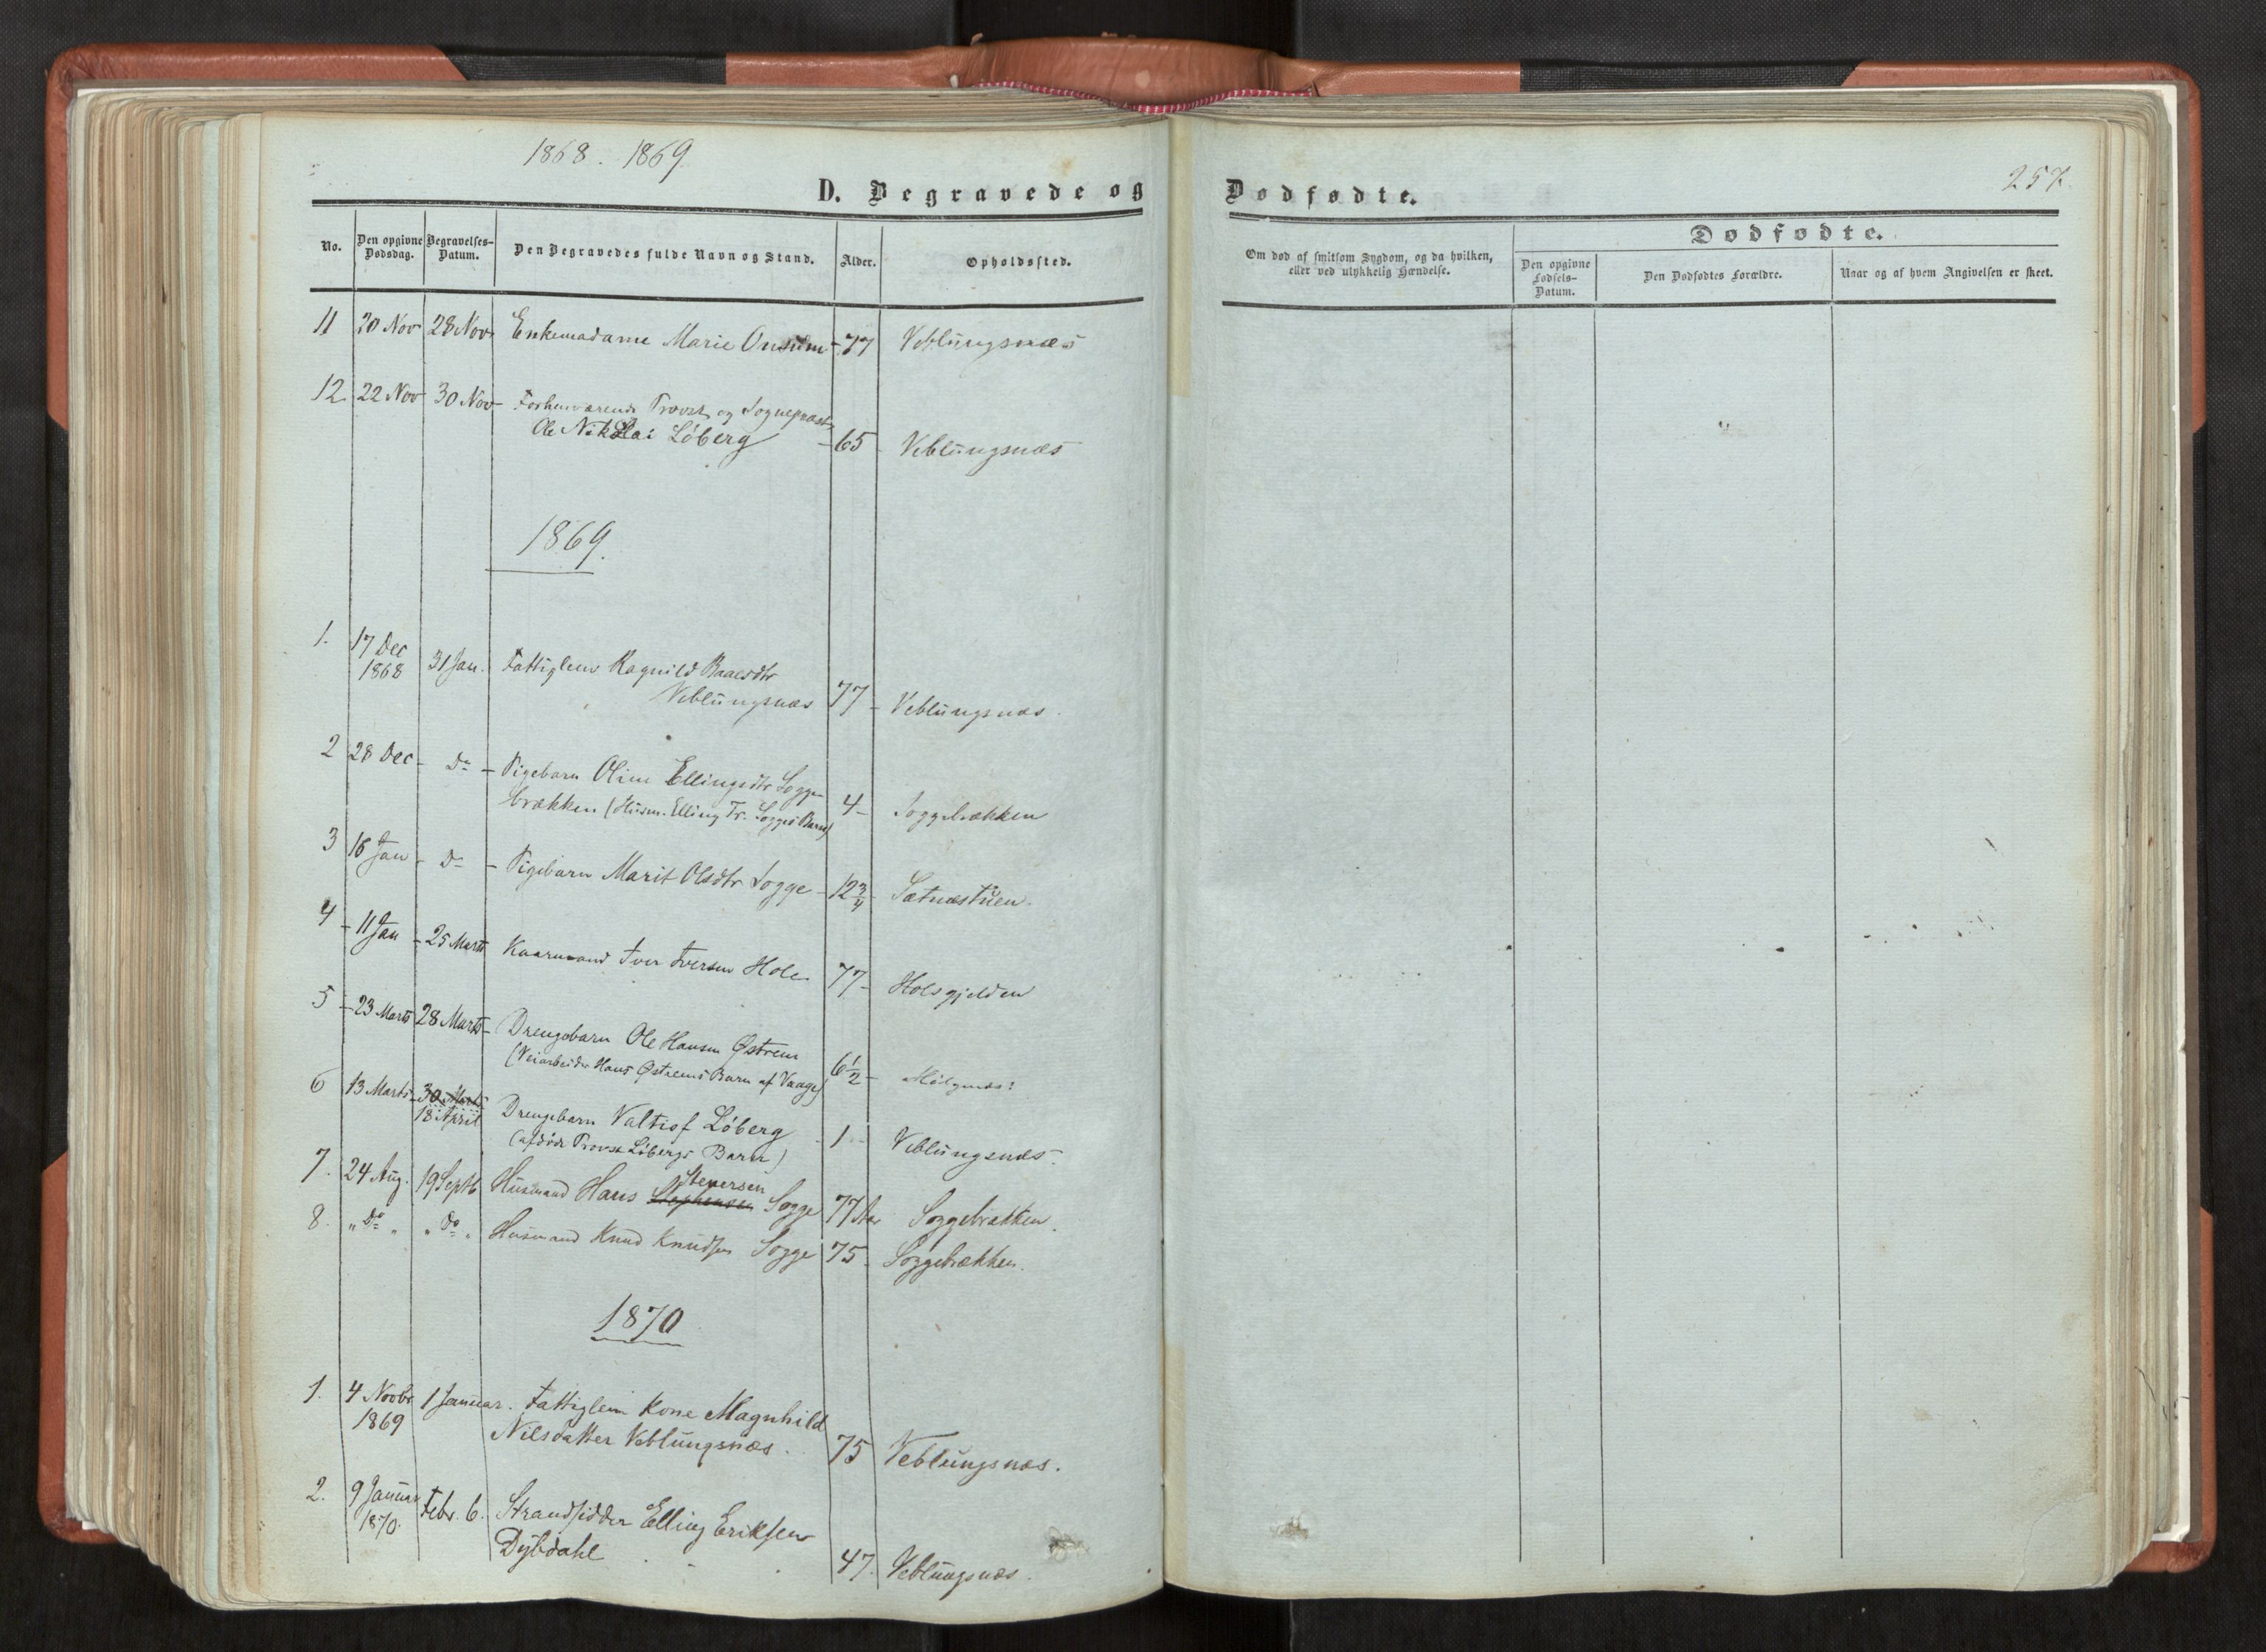 1868. 1869.
257.
D. Begravede og Dødfødte.
No. Den opgivne Dødsdag. Begravelses-Datum. Den Begravedes fulde Navn og Stand. Alder. Opholdssted.
Om død af smitsom Sygdom, og da hvilken, eller ved ulykkelig Hændelse.
Dødfødte.
Den opgivne Fødsels-Datum. Den Dødfødtes Forældre. Naar og af hvem Angivelsen er skeet.
11 20 Nov 28 Nov Enkemadame Marie Onsum 77 Veblungsnæs
12. 22 Nov 30 Nov Forhenværende Provst og Sognepræst
Ole Nikolai Løberg 65 Veblungsnæs
1869.
1. 17 Dec 1868 31 Jan. Fattiglem Ragnild Baardtr
Veblungsnæs 77 Veblungsnæs.
2 28 Dec Do Pigebarn Oline Ellingsdtr Sogge
brækken (Husm. Elling Fr. Sogges Barn) 4 Soggebrækken
3 16 Jan Do Pigebarn Marit Olsdtr Sogge 12 3/4 Sætnæstuen.
4 11 Jan 25 Marts Kaarmand Iver Iversen Hole 77 Holsgjelden
5 23 Marts 28 Marts Drengebarn Ole Hansen Østrem
(Veiarbeider Hans Østrems Barn af Vaage) 6 1/2
6 13 Marts 30 Marts
18 April Drengebarn Valtiof Løberg
(afdøde Provst Løbergs Barn) 1 Veblungsnæs.
7. 24 Aug. 19 Septb Husmand Hans Stephensen Steversen Sogge 77 Aar Soggebrækken.
8. " Do " " Do " Husmand Knud Knudsen Sogge 75 Soggebrækken.
1870
1. 4 Novbr 1869 1 Januar. Fattiglem Kone Magnhild
Nilsdatter Veblungsnæs. 75 Veblungsnæs.
2. 9 Januar 1870. Febr. 6. Strandsidder Elling Eriksen
Dybdahl 47. Veblungsnæs.